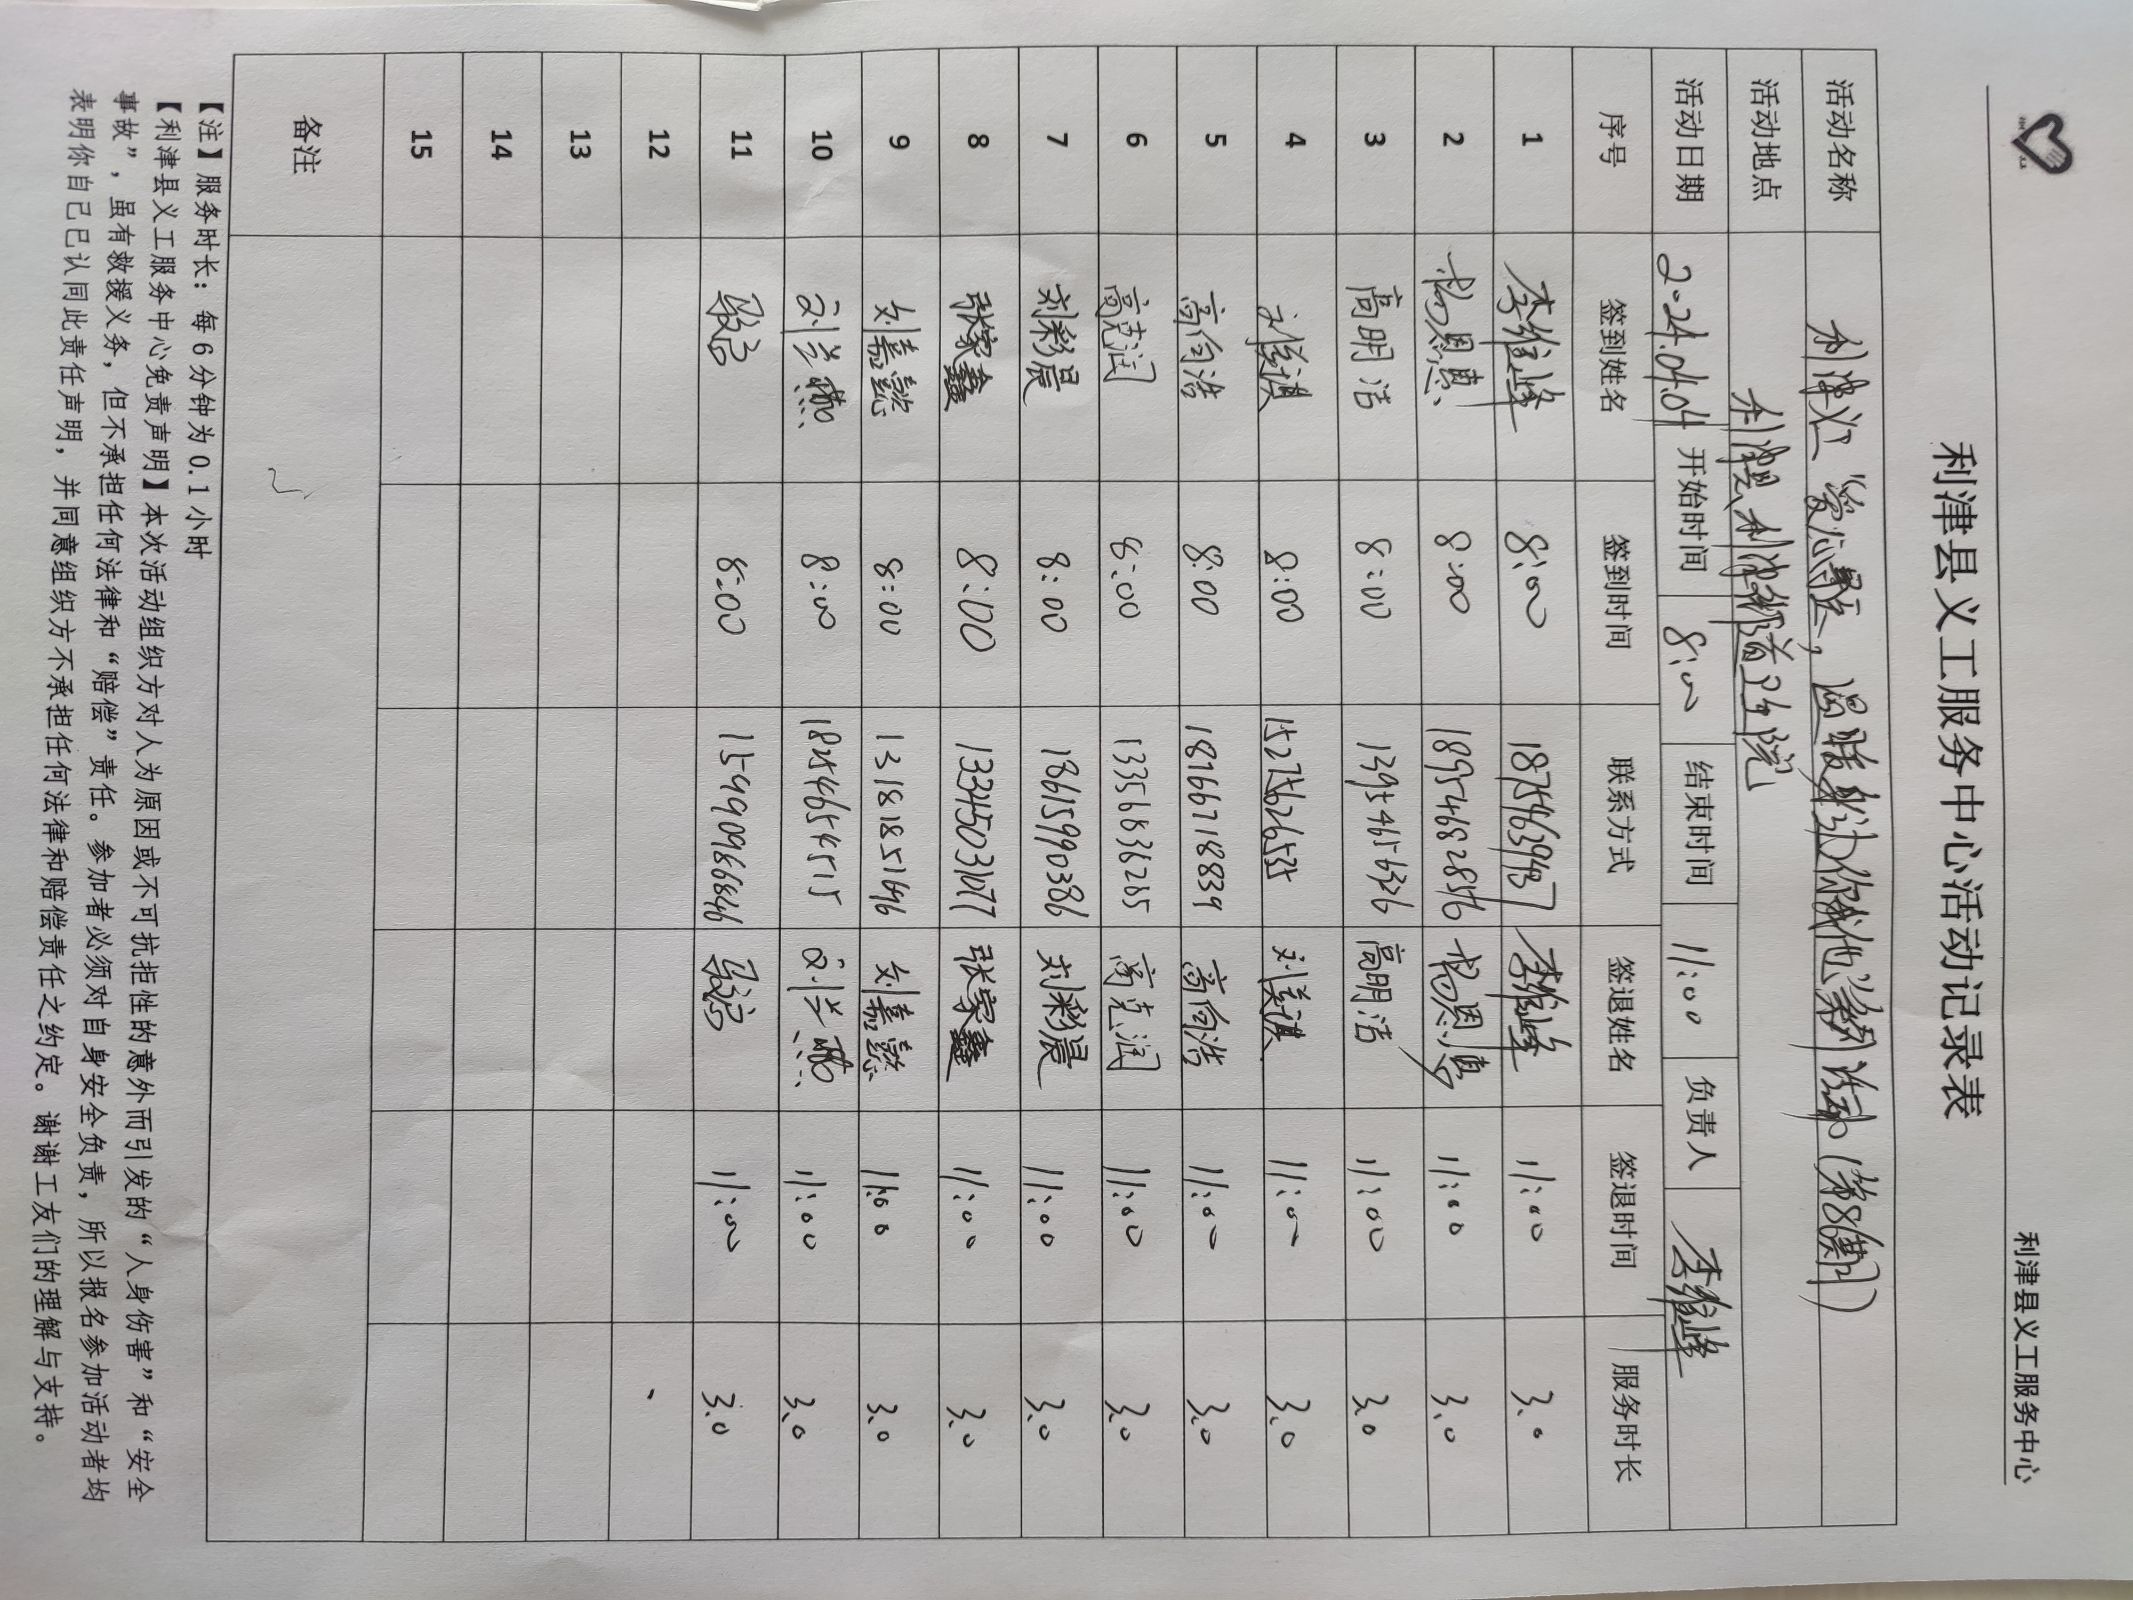 利津县义工服务中心
利津县义工服务中心活动记录表
活动名称 利津义工“爱心
活动地点 利津县利津街道卫生院
活动日期 2024.04.04 开始时间 8:00 结束时间 11:00 负责人 李维峰
序号 签到姓名 签到时间 联系方式 签退姓名 签退时间 服务时长
1 李维峰 8:00 李维峰 11:00 3.0
2 杨恩惠 8:00 18954682856 杨恩惠 11:00 3.0
3 高明洁 8:00 13954656326 高明洁 11:00 3.0
4 8:00 15275626535 11:00 3.0
5 高向浩 8:00 18766718839 高向浩 11:00 3.0
6 高克润 8:00 13356836265 高克润 11:00 3.0
7 刘彩晨 8:00 18615990386 刘彩晨 11:00 3.0
8 张家鑫 8:00 13345031077 张家鑫 11:00 3.0
9 刘嘉懿 8:00 13181851646 刘嘉懿 11:00 3.0
10 8:00 18254654515 11:00 3.0
11 8:00 15990966846 11:00 3.0
12
13
14
15
备注
【注】服务时长：每6分钟为0.1小时
【利津县义工服务中心免责声明】本次活动组织方对人为原因或不可抗拒性的意外而引发的“人身伤害”和“安全
事故”，虽有救援义务，但不承担任何法律和“赔偿”责任。参加者必须对自身安全负责，所以报名参加活动者均
表明你自己已认同此责任声明，并同意组织方不承担任何法律和赔偿责任之约定。谢谢工友们的理解与支持。